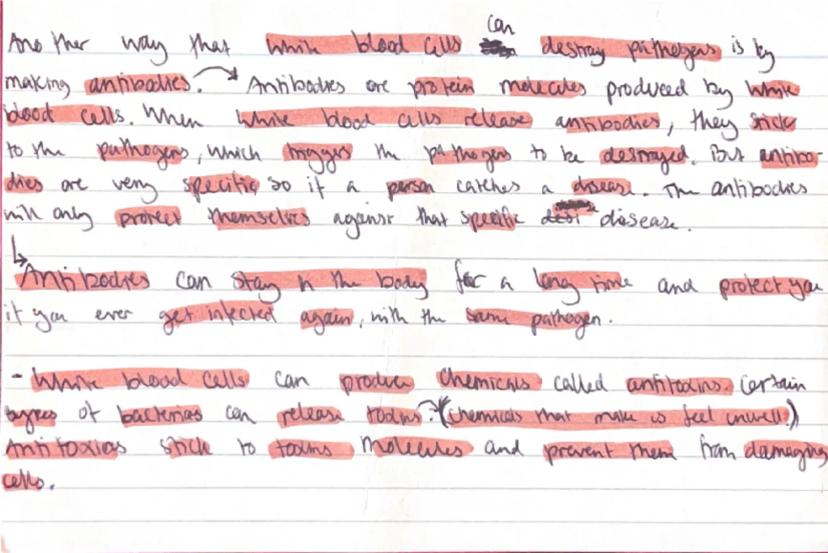 Another way that white blood cells can destroy pathogens is by
making antibodies. → Antibodies are protein molecules produced by white
blood cells. When white blood cells release antibodies, they stick
to the pathogens, which triggers the pathogens to be destroyed. But antibo-
dies are very specific so if a person catches a disease. The antibodies
will only protect themselves against that specific disease.
Antibodies can stay in the body for a long time and protect you
if you ever get infected again, with the same pathogen.
- White blood cells can produce chemicals called antitoxins. Certain
types of bacterias can release toxins. (chemicals that make us feel unwell)
Antitoxins stick to toxins molecules and prevent them from damaging
cells.